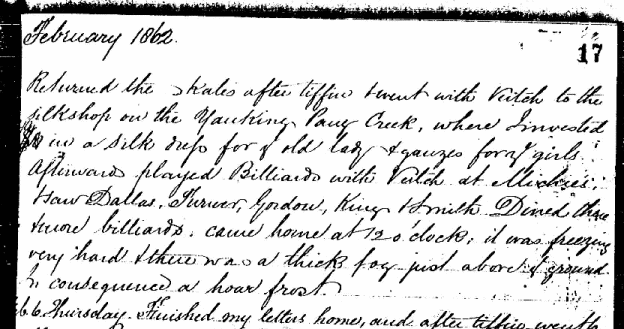 February 1862.
17
Returned the skates after tiffin & went with Veitch to the
silkshop on the Yanking Pang Creek, where I invested
in a silk dress for ye old lady & gauzes for ye girls.
Afterwards played Billiards with Veitch at Michies;
saw Dallas, Turner, Gordon, King & Smith. Dined there
& more billiards. came home at 12 o'clock; it was freezing
very hard & there was a thick fog just above ye ground
& consequence a hoar frost.
6. Thursday. Finished my letters home, and after tiffin went